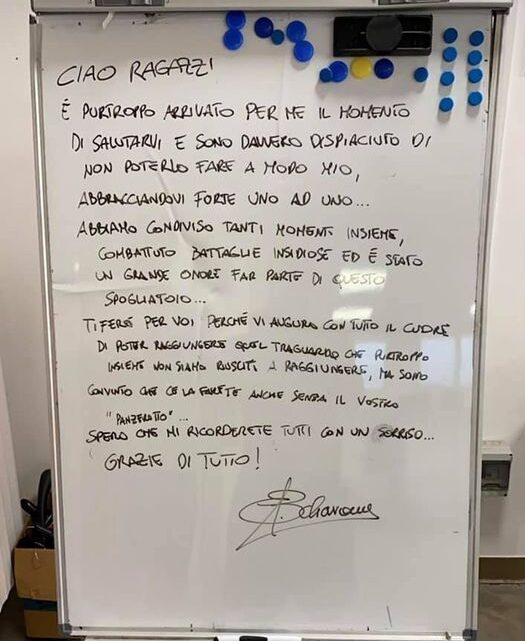 CIAO RAGAZZI
É PURTROPPO ARRIVATO PER ME IL MOMENTO
DI SALUTARVI E SONO DAVVERO DISPIACIUTO DI
NON POTERLO FARE A MODO MIO,
ABBRACCIANDOVI FORTE UNO AD UNO...
ABBIAMO CONDIVISO TANTI MOMENTI INSIEME,
COMBATTUTO BATTAGLIE INSIDIOSE ED É STATO
UN GRANDE ONORE FAR PARTE DI QUESTO
SPOGLIATOIO...
TIFERÒ PER VOI PERCHÉ VI AUGURO CON TUTTO IL CUORE
DI POTER RAGGIUNGERE QUEL TRAGUARDO CHE PURTROPPO
INSIEME NON SIAMO RIUSCITI A RAGGIUNGERE, MA SONO
CONVINTO CHE CE LA FARETE ANCHE SENZA IL VOSTRO
"PANZEROTTO"...
SPERO CHE MI RICORDERETE TUTTI CON UN SORRISO...
GRAZIE DI TUTTO!